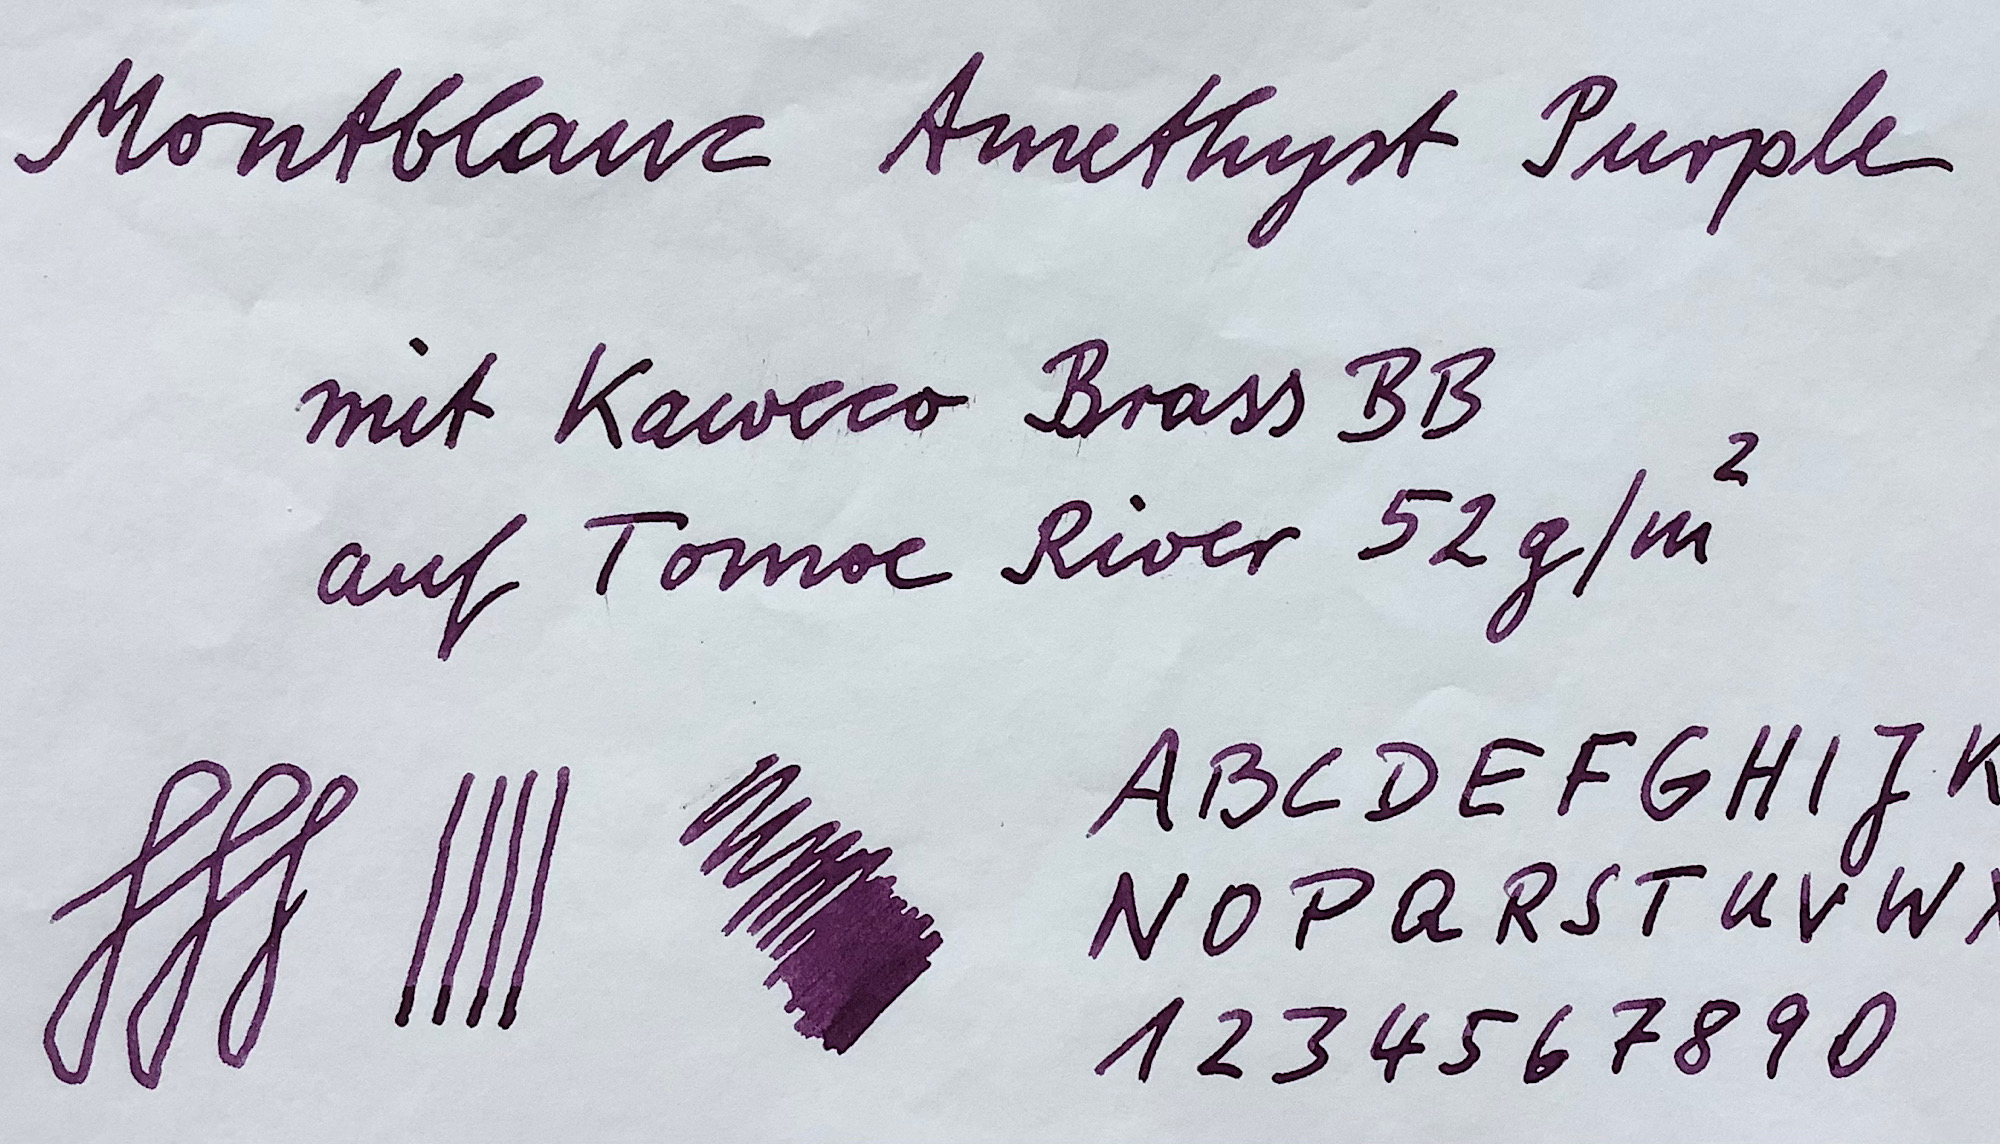 Montblanc Amethyst Purple
mit Kaweco Brass BB
auf Tomoe River 52g/m²
fff
ABCDEFGHIJK
NOPQRSTUVWX
1234567890